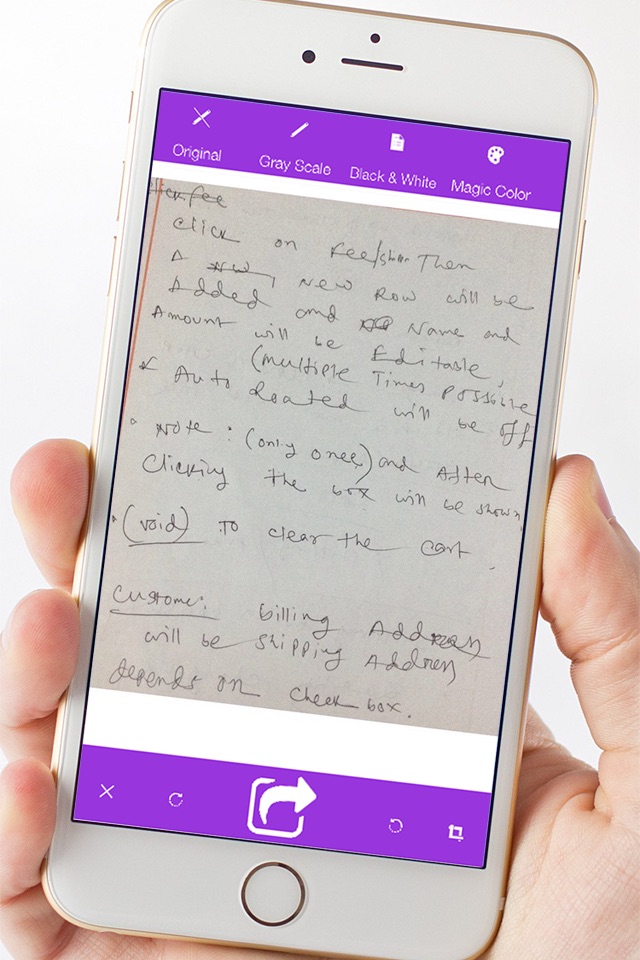 Original
Gray Scale
Black & White
Magic Color
click on Fee/ Then
A new, New Row will be
Added and Name and
Amount will be Editable,
(Multiple Times possible
Auto will be off
Note : (only once) and After
Clicking the box will be shown
(void) To clear the cart.
Customer: billing Address
will be shipping Address
depends on check box.